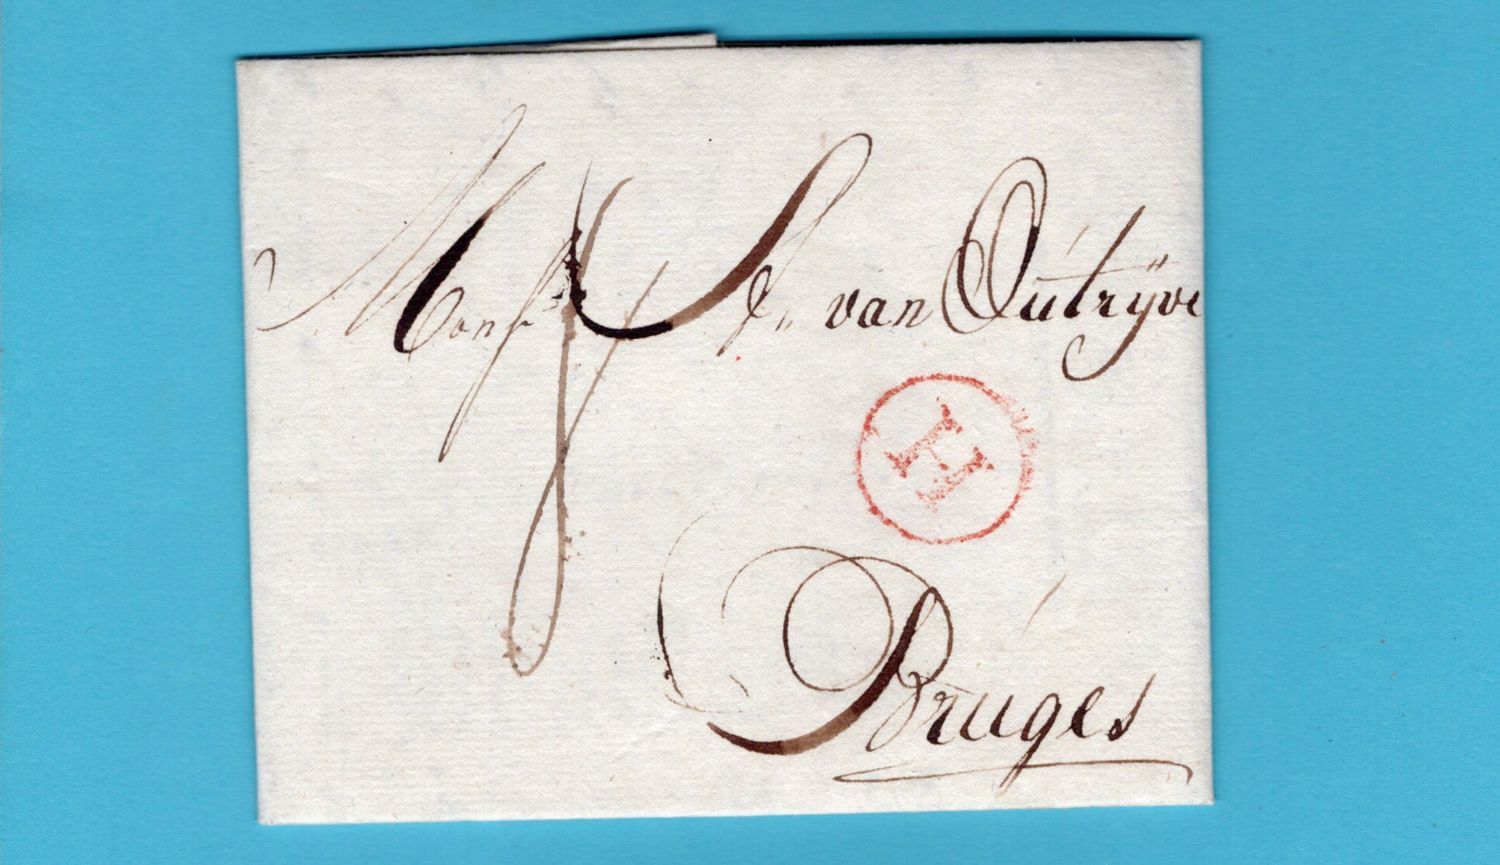 Monsr. van Outrÿve
H
Bruges